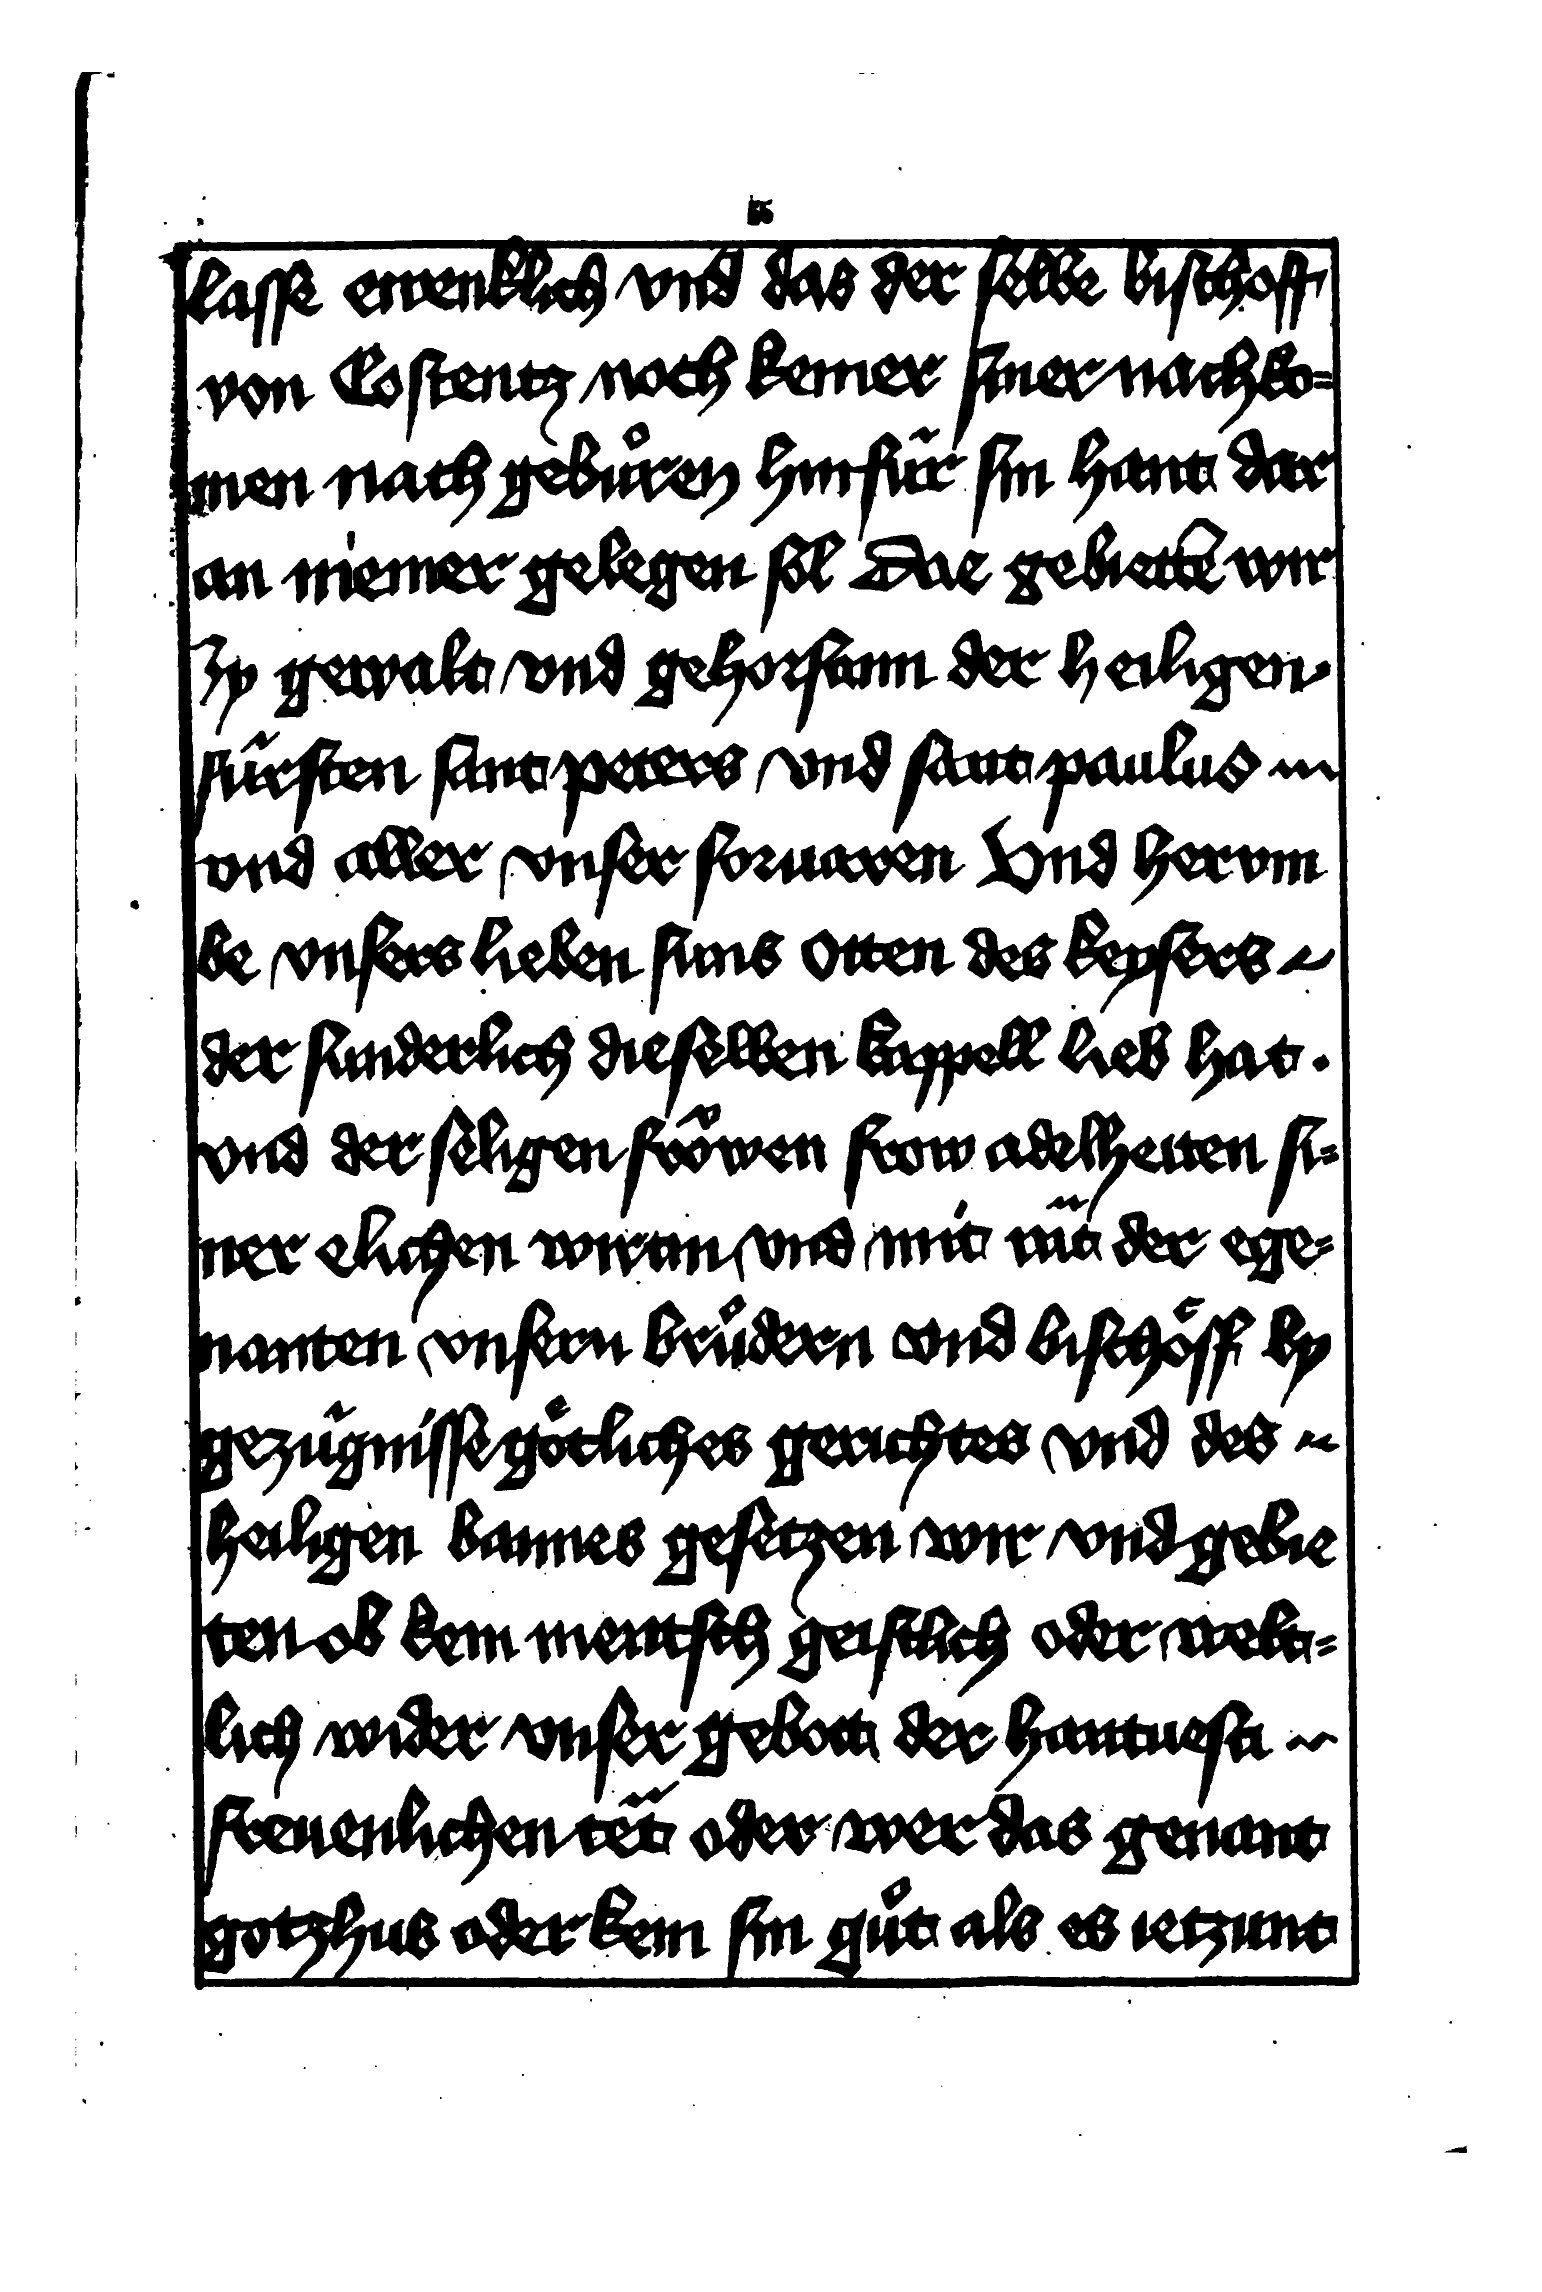 lasse ewenklich vnd das der selbe bischoff
von Costentz noch keiner siner nachko=
men nach gebůren hin fúr sin hant dar
an niemer gelegen sol Die gebietten wir
by gewalt vnd gehorsam der heiligen
fúrsten sant peters vnd sant paulus
vnd aller vnser foruaren Vnd her vm
be vnsers lieben suns Otten des keysers
der sunderlich die selben kappell lieb hat.
vnd der seligen frôwen frow adelheiten si=
ner elichen wirtin vnd mit rát der ege=
nanten vnsern brůdern vnd bischoͤff by
gezúgnisse goͤtliches gerichtes vnd des
heiligen bannes gesetzen wir vnd gebie
ten ob kein mentsch geistlich oder welt=
lich wider vnser gebott der hantuesti
freuenlichen tët oder wer das genant
gotzhus oder kein sin gůt als es ietzunt